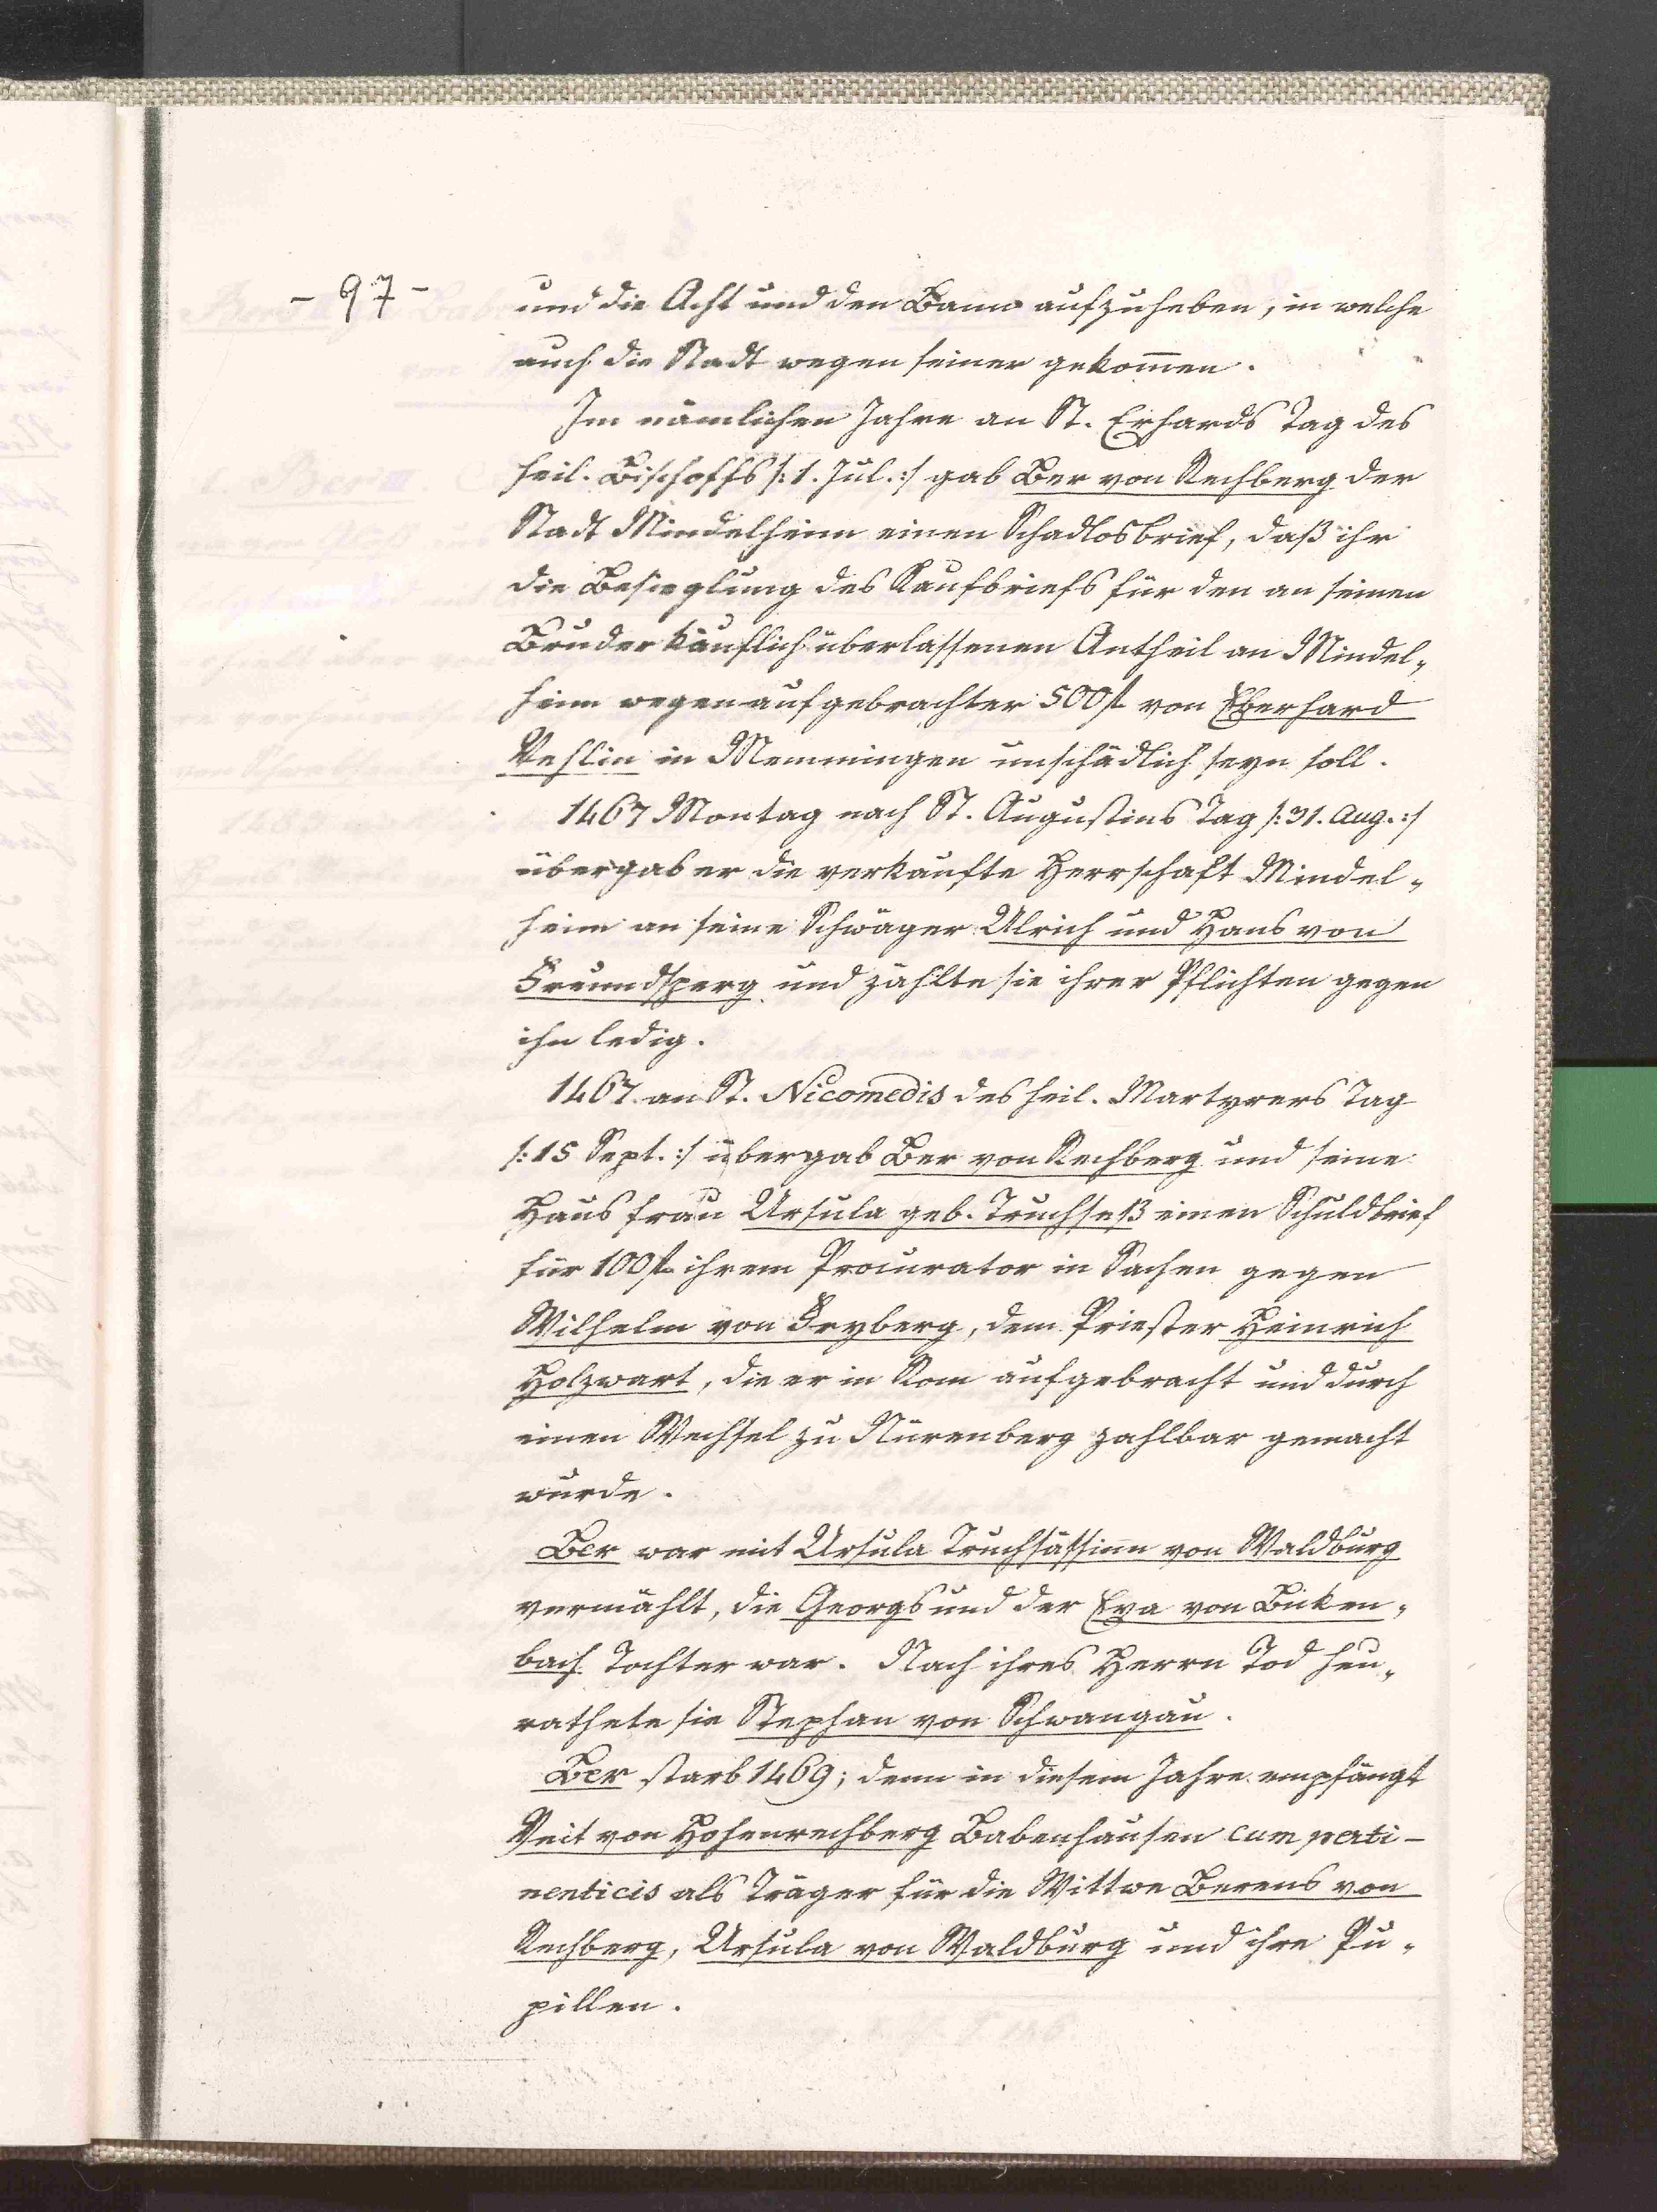 - 97 -
und die Acht und den Bann aufzuheben, in welche
auch die Stadt wegen seiner gekom̄en.
Im nämlichen Jahre an St. Erhards Tag des
heil. Bischoffs /: 1. Jul. :/ gab Ber von Rechberg der
Stadt Mindelheim einen Schadlosbrief, daß ihr
die Besieglung des Kaufbriefs für den an seinen
Bruder käuflich überlassenen Antheil an Mindel„
heim wegen aufgebrachter 500 fl von Eberhard
Vehlin in Memmingen unschädlich seyn soll.
1467 Montag nach St. Augustins Tag /: 31. Aug. :/
übergab er die verkaufte Herrschaft Mindel„
heim an seine Schwäger Ulrich und Hans von
Freundsperg und zählte sie ihrer Pflichten gegen
ihn ledig.
1467 an St. Nicomedis des heil. Martyrers Tag
/: 15 Sept. :/ übergab Ber von Rechberg und seine
Hausfrau Ursula geb. Truchseß einen Schuldbrief
für 100 fl ihrem Procurator in Sachen gegen
Wilhelm von Fryberg, dem Priester Heinrich
Holzwart, die er in Rom aufgebracht und durch
einen Wechsel zu Nürenberg zahlbar gemacht
wurde.
Ber war mit Ursula Truchsässinn von Waldburg
vermählt, die Georgs und der Eva von Biken„
bach Tochter war. Nach ihres Herrn Tod heu„
rathete sie Stephan von Schwangau.
Ber starb 1469; denn in diesem Jahre empfängt
Veit von Hohenrechberg Babenhausen cum perti-
nenticis als Träger für die Wittwe Berens von
Rechberg, Ursula von Waldburg und ihre Pu„
pillen.